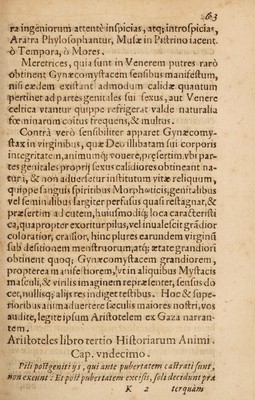 63
ra ingeniorum attentè inspicias, atq; introspicias,
Aratra Phylosophantur, Musæ in Pistrino iacent.
ò Tempora, ò Mores.
Meretrices, quia sunt in Venerem putres rarò
obtinent Gynæcomystacem sensibus manifestum,
nisi eædem existant admodum calidæ quantum
pertinet ad partes genitales sui sexus, aut Venere
celtica vtantur quippe refrigerat valde naturalia
fœminarum coitus frequens, & multus.
Contrà verò sensibiliter apparet Gynæcomy-
stax in virginibus, quæ Deo illibatam sui corporis
integritatem, animumq; vouere, præsertim vbi par-
tes genitales proprij sexus calidiores obtineant na-
turâ, & non aduersetur institutum vitæ reliquum,
quippe sanguis spiritibus Morphoticis, genitalibus
vel seminalibus largiter perfusus quasi restagnat, &
præsertim ad cutem, huiusmodiq; loca caracteristi
ca, quapropter exoritur pilus, vel inualescit grãdior
coloratior, crassior, hinc plures earundem virginũ
sub desitionem menstruorum, atq; ætate grandiori
obtinent quoq; Gynæcomystacem grandiorem,
propterea manifestiorem, vt in aliquibus Mystacis
masculi, & virilis imaginem repræsentet, sensus do
cet, nullisq; alijs res indiget testibus. Hoc & supe-
rioribus animaduertere sæculis maiores nostri, vos
audite, legite ipsum Aristotelem ex Gaza narran-
tem.
Aristoteles libro tertio Historiarum Animi.
Cap. vndecimo.
Pili postgeniti ijs, qui ante pubertatem castrati sunt,
non exeunt: Et post pubertatem excisis, soli decidunt præ
K 2 terquàm